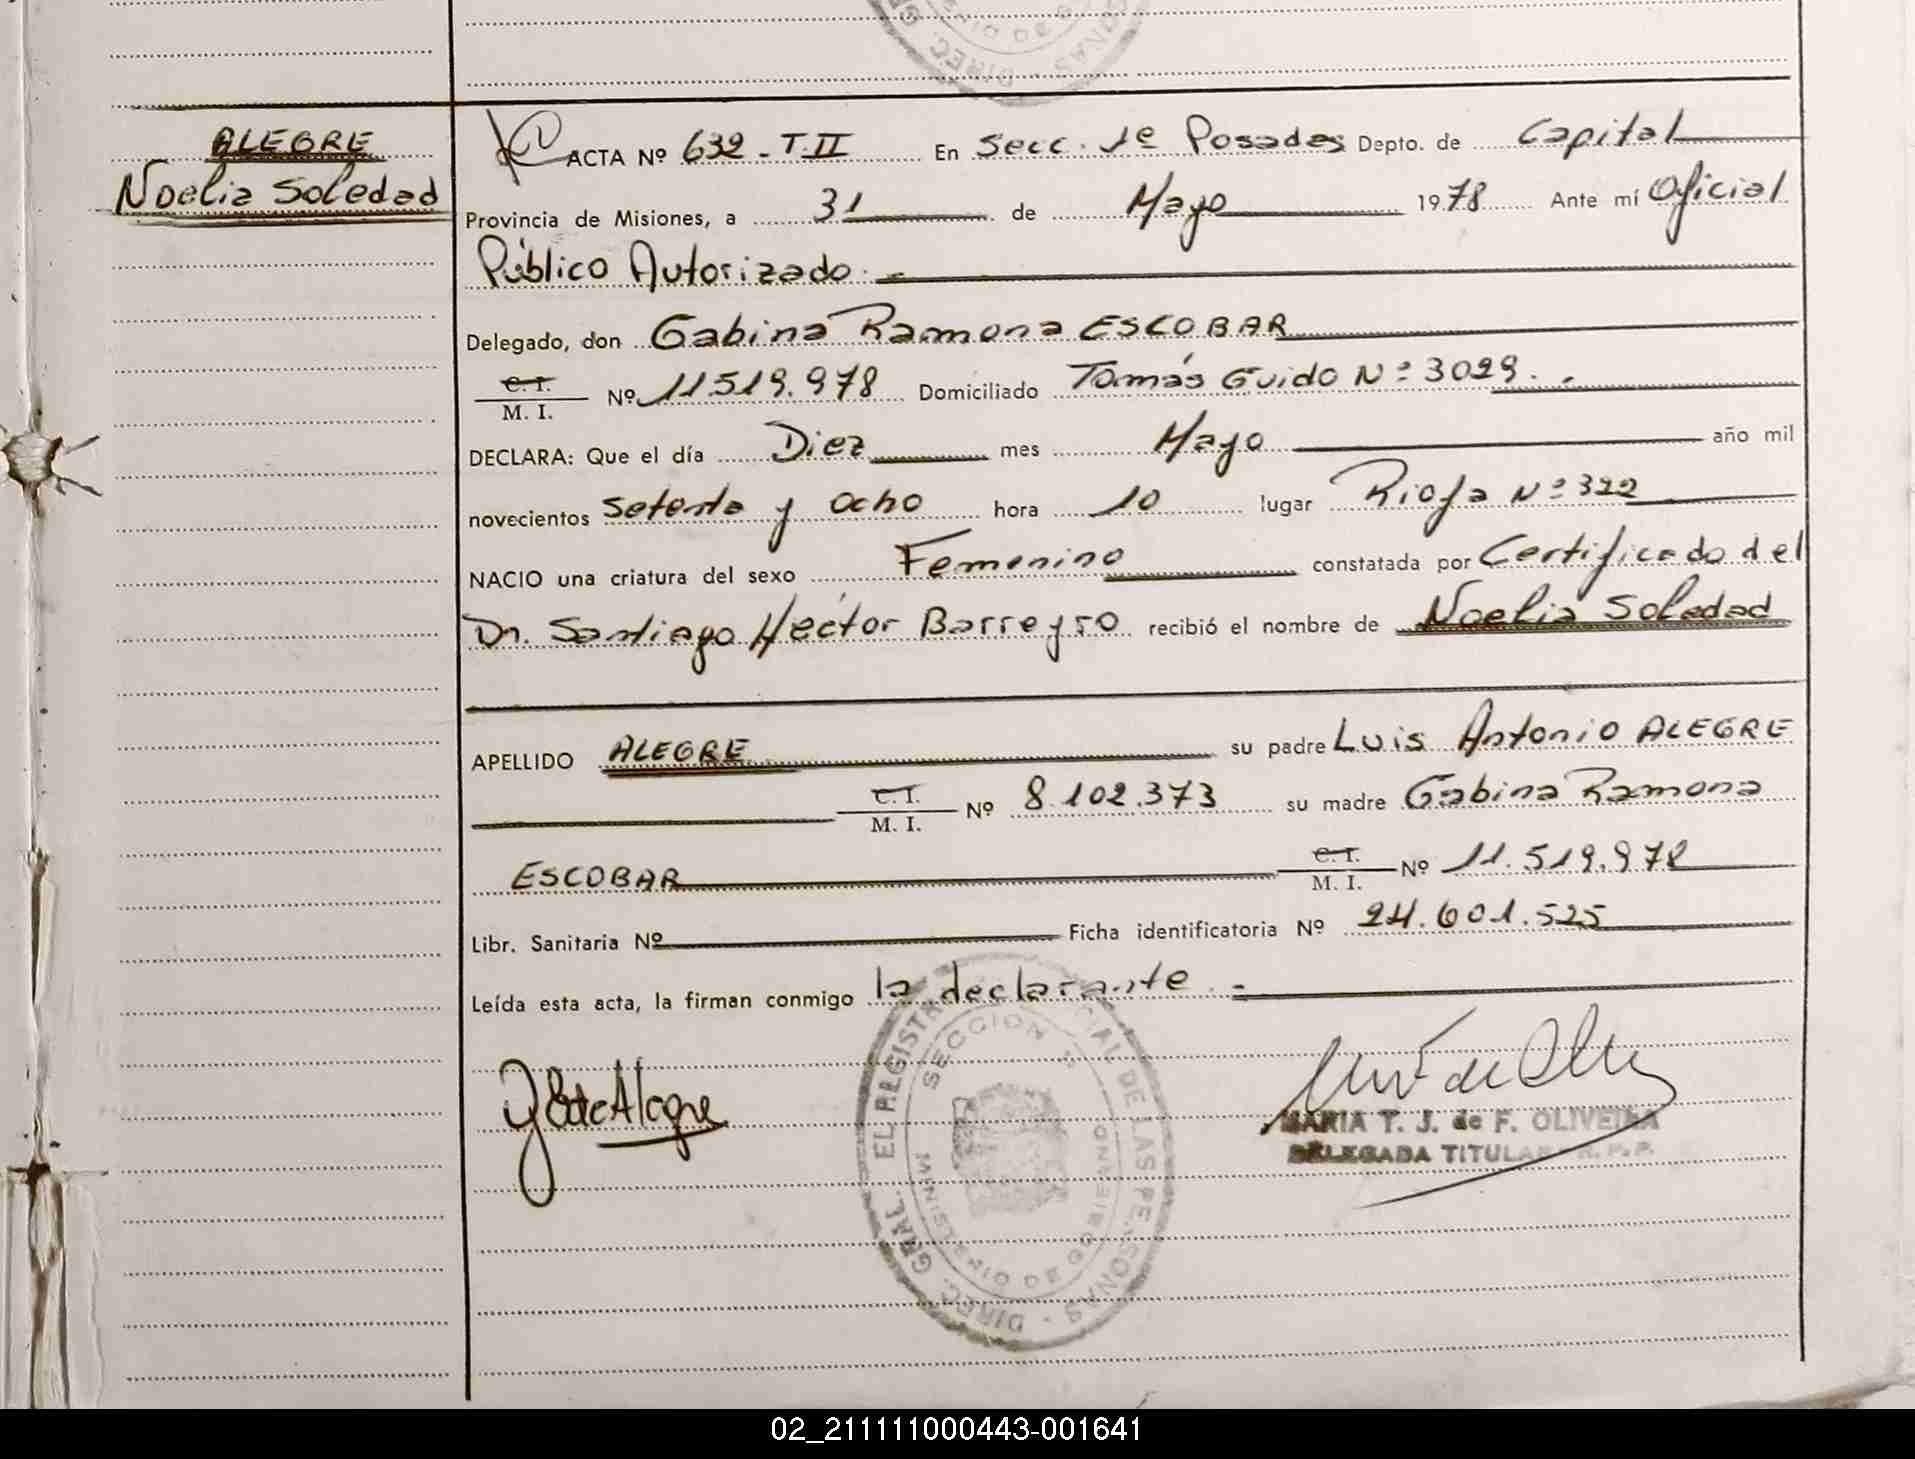 ALEGRE
Noelia Soledad
ACTA Nº 632 - T.II En Secc. 1ª Posadas Depto. de Capital
Provincia de Misiones, a 31 de Mayo 1978 Ante mí Oficial
Público Autorizado.-
Delegado, don Gabina Ramona ESCOBAR
C. I.
M. I. Nº 11.519.978 Domiciliado Tomás Guido Nº 3029.-
DECLARA: Que el día Diez mes Mayo año mil
novecientos setenta y ocho hora 10 lugar Rioja Nº 322
NACIO una criatura del sexo Femenino constatada por Certificado del
Dr. Santiago Héctor Barreyro recibió el nombre de Noelia Soledad
APELLIDO ALEGRE su padre Luis Antonio ALEGRE
C. I.
M. I. Nº 8.102.373 su madre Gabina Ramona
ESCOBAR C. I.
M. I. Nº 11.519.978
Libr. Sanitaria Nº Ficha identificatoria Nº 24.601.525
Leída esta acta, la firman conmigo la declarante.-
de Alegre
MARIA T. J. de F. OLIVEIRA
DELEGADA TITULAR R. P. P.
DIREC. GRAL. EL REGISTR DE LAS PERSONAS
SECCION
MINISTERIO DE GOBIERNO
02_211111000443-001641